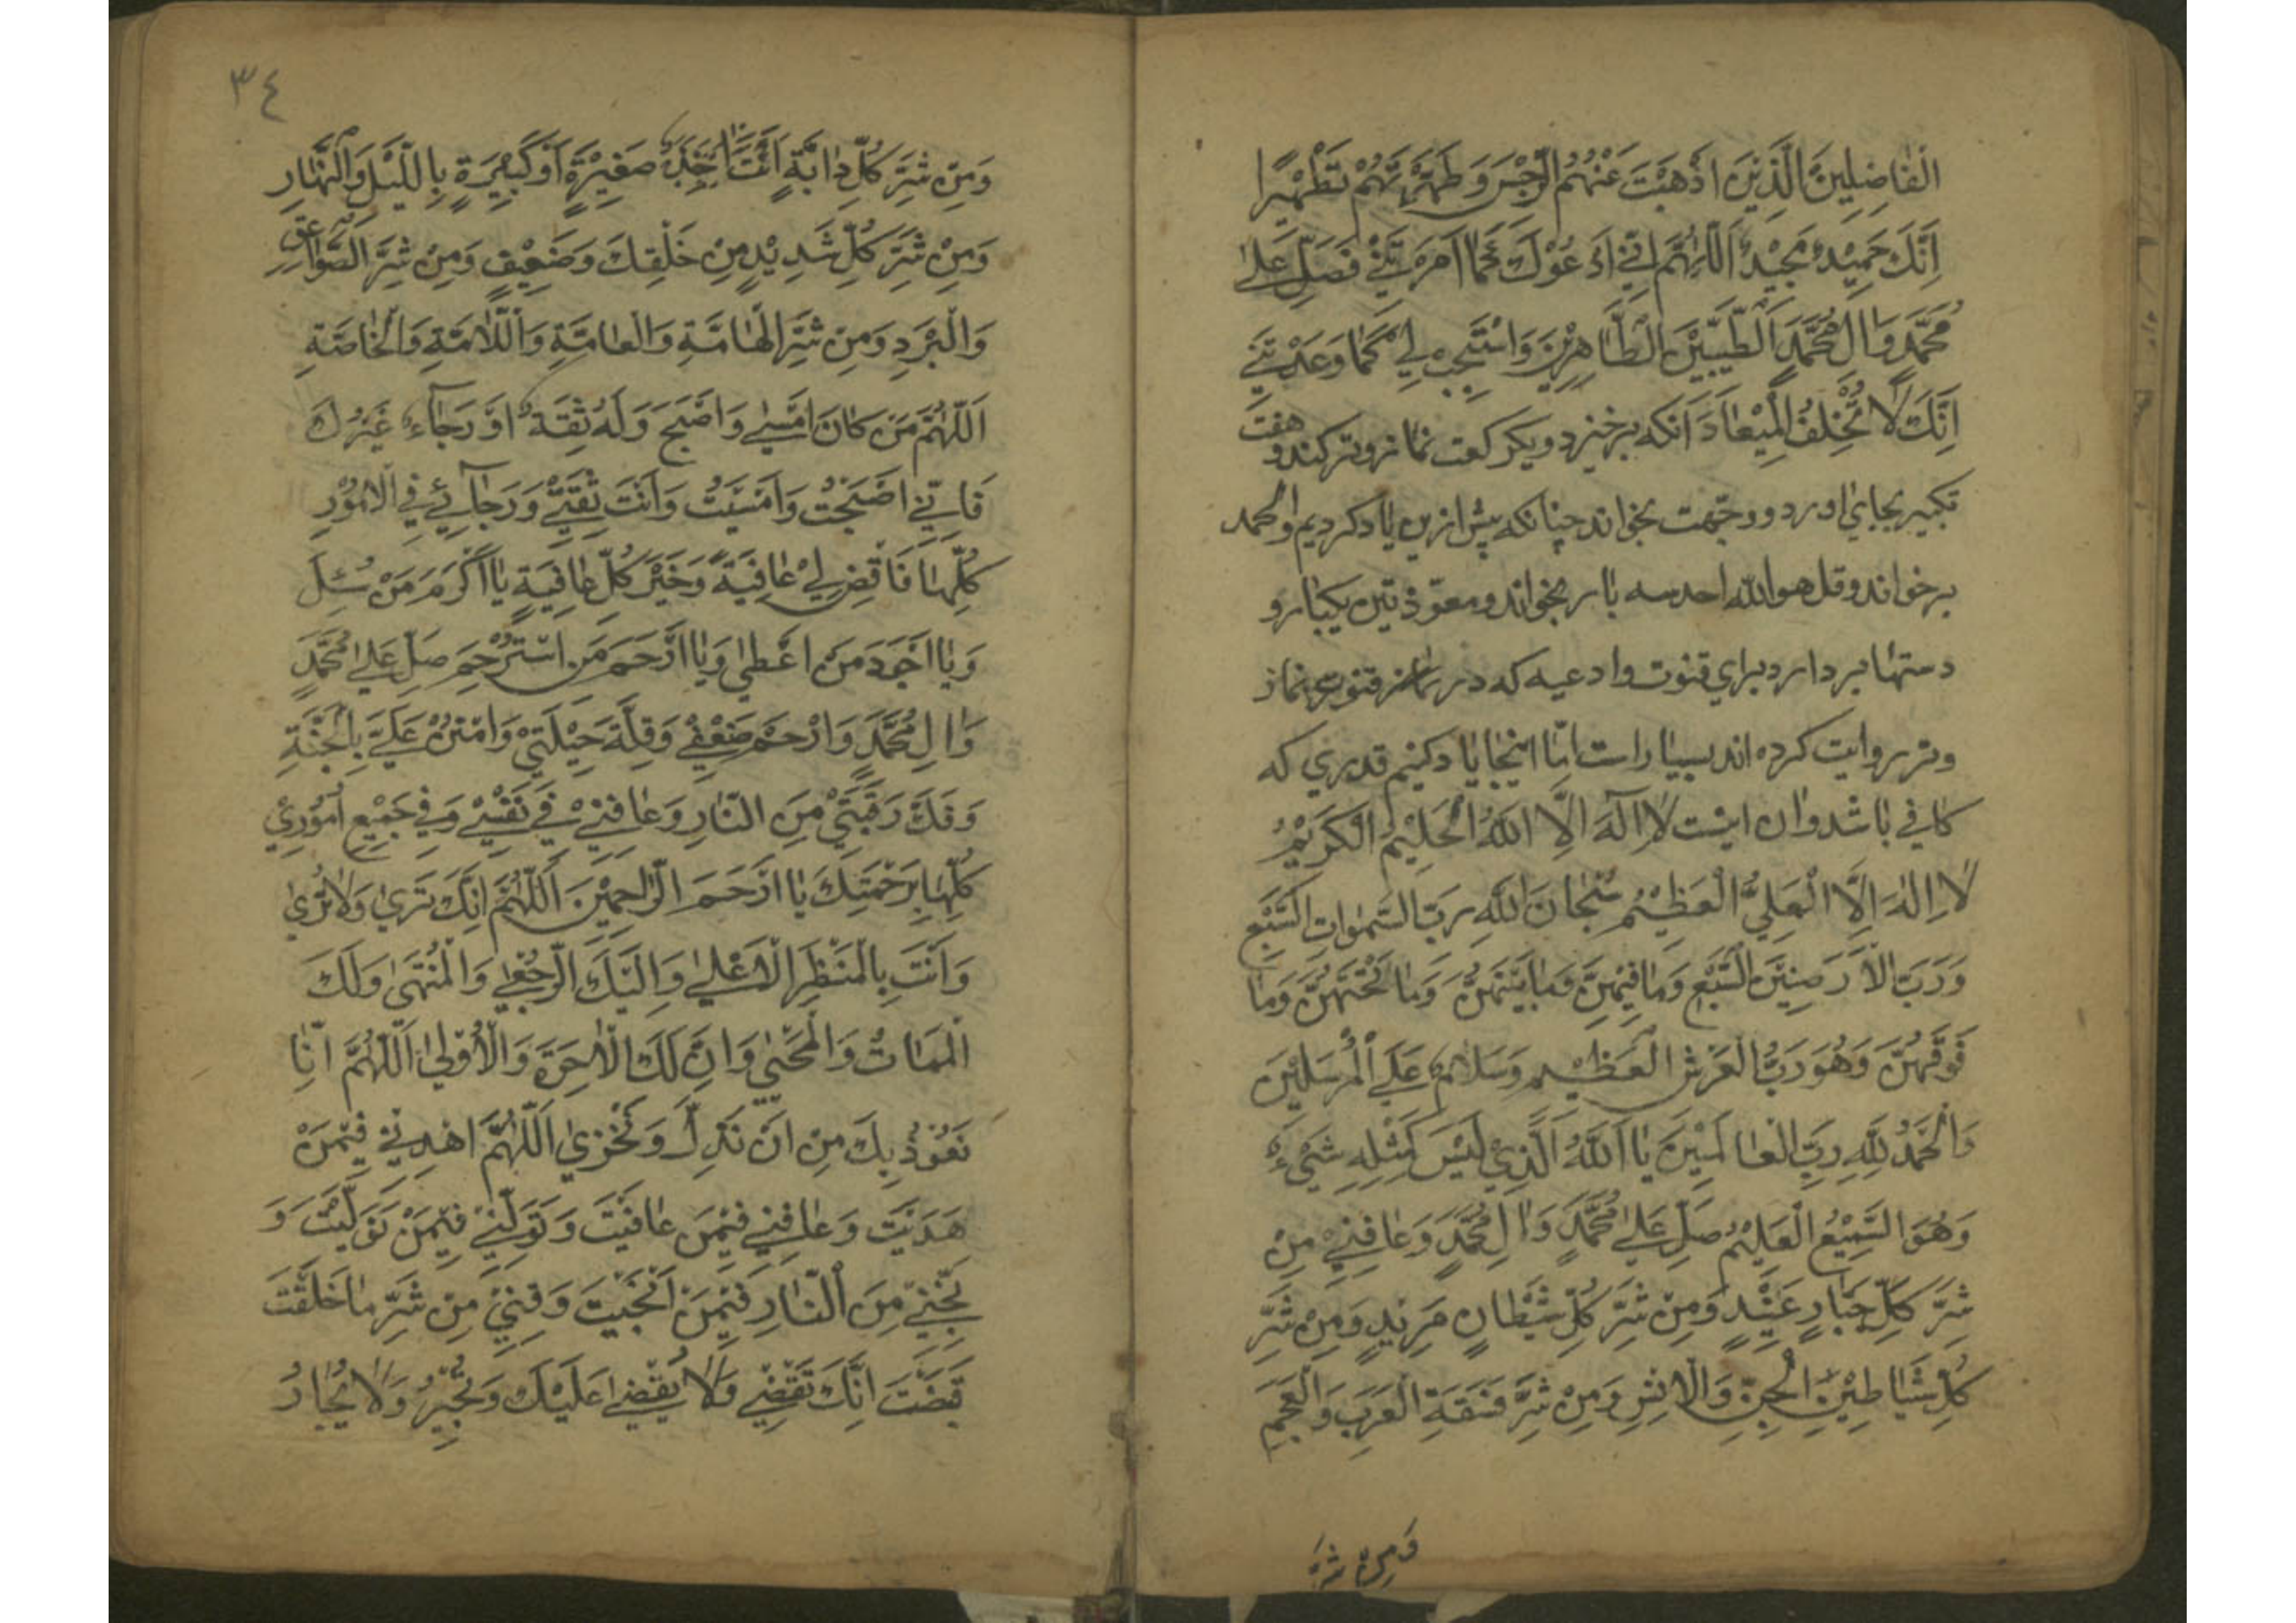 الْفَاضِلِينَ الَّذِينَ اَذْهَبْتَ عَنْهُمُ الرِّجْسَ وَطَهَّرْتَهُمْ تَطْهِيرًا
اِنَّكَ حَمِيْدٌ مَجِيْدٌ اَللّٰهُمَّ اِنِّي اَدْعُوْكَ كَمَا اَمَرْتَنِي فَصَلِّ عَلىٰ
مُحَمَّدٍ وَاٰلِ مُحَمَّدٍ الطَّيِّبِيْنَ الطَّاهِرِيْنَ وَاسْتَجِبْ لِي كَمَا وَعَدْتَنِي
اِنَّكَ لَا تُخْلِفُ الْمِيْعَادَ آنکه برخیزد ویکرکعت نماز وتر کند و هفت
تکبیر بجای اورد و وجّهت بخواند چنانکه پیش ازین یاد کردیم والحمد
برخواند وقل هو الله احد سه بار بخواند ومعوّذتین یکبار و
دستها بردارد برای قنوت وادعیه که در قنوت نماز
وتر روایت کرده اند بسیار است امّا اینجا یاد کنیم قدری که
کافی باشد وان اینست لَا اِلٰهَ اِلَّا اللهُ الْحَلِيْمُ الْكَرِيْمُ
لَا اِلٰهَ اِلَّا الْعَلِيُّ الْعَظِيْمُ سُبْحَانَ اللهِ رَبِّ السَّمٰوَاتِ السَّبْعِ
وَرَبِّ الْاَرَضِيْنَ السَّبْعِ وَمَا فِيْهِنَّ وَمَا بَيْنَهُنَّ وَمَا تَحْتَهُنَّ وَمَا
فَوْقَهُنَّ وَهُوَ رَبُّ الْعَرْشِ الْعَظِيْمِ وَسَلَامٌ عَلَى الْمُرْسَلِيْنَ
وَالْحَمْدُ لِلّٰهِ رَبِّ الْعَالَمِيْنَ يَا اَللهُ الَّذِيْ لَيْسَ كَمِثْلِهِ شَيْءٌ
وَهُوَ السَّمِيْعُ الْعَلِيْمُ صَلِّ عَلىٰ مُحَمَّدٍ وَاٰلِ مُحَمَّدٍ وَعَافِنِيْ مِنْ
شَرِّ كُلِّ جَبَّارٍ عَنِيْدٍ وَمِنْ شَرِّ كُلِّ شَيْطَانٍ مَرِيْدٍ وَمِنْ شَرِّ
كُلِّ شَيَاطِيْنِ الْجِنِّ وَالْاِنْسِ وَمِنْ شَرِّ فَسَقَةِ الْعَرَبِ وَالْعَجَمِ
وَمِنْ شَرِّ
٣٤
وَمِنْ شَرِّ كُلِّ دَابَّةٍ اَنْتَ اٰخِذٌ صَغِيْرَةٍ اَوْ كَبِيْرَةٍ بِاللَّيْلِ وَالنَّهَارِ
وَمِنْ شَرِّ كُلِّ شَدِيْدٍ مِنْ خَلْقِكَ وَضَعِيْفٍ وَمِنْ شَرِّ الصَّوَاعِقِ
وَالْبَرَدِ وَمِنْ شَرِّ الْهَامَّةِ وَالْعَامَّةِ وَاللَّامَّةِ وَالْخَاصَّةِ
اَللّٰهُمَّ مَنْ كَانَ اَمْسىٰ وَاَصْبَحَ وَلَهُ ثِقَةٌ اَوْ رَجَاءٌ غَيْرُكَ
فَاِنِّي اَصْبَحْتُ وَاَمْسَيْتُ وَاَنْتَ ثِقَتِيْ وَرَجَائِيْ فِي الْاُمُوْرِ
كُلِّهَا فَاقْضِ لِيْ عَافِيَةً وَخَيْرَ كُلِّ عَافِيَةٍ يَا اَكْرَمَ مَنْ سُئِلَ
وَيَا اَجْوَدَ مَنْ اَعْطىٰ وَيَا اَرْحَمَ مَنِ اسْتُرْحِمَ صَلِّ عَلىٰ مُحَمَّدٍ
وَاٰلِ مُحَمَّدٍ وَارْحَمْ ضَعْفِيْ وَقِلَّةَ حِيْلَتِيْ وَامْنُنْ عَلَيَّ بِالْجَنَّةِ
وَفُكَّ رَقَبَتِيْ مِنَ النَّارِ وَعَافِنِيْ فِيْ نَفْسِيْ وَفِيْ جَمِيْعِ اُمُوْرِيْ
كُلِّهَا بِرَحْمَتِكَ يَا اَرْحَمَ الرَّاحِمِيْنَ اَللّٰهُمَّ اِنَّكَ تَرىٰ وَلَا تُرىٰ
وَاَنْتَ بِالْمَنْظَرِ الْاَعْلىٰ وَاِلَيْكَ الرُّجْعىٰ وَالْمُنْتَهىٰ وَلَكَ
الْمَمَاتُ وَالْمَحْيٰى وَاِنَّ لَكَ الْاٰخِرَةَ وَالْاُوْلىٰ اَللّٰهُمَّ اِنَّا
نَعُوْذُ بِكَ مِنْ اَنْ نَذِلَّ وَنَخْزىٰ اَللّٰهُمَّ اهْدِنِيْ فِيْمَنْ
هَدَيْتَ وَعَافِنِيْ فِيْمَنْ عَافَيْتَ وَتَوَلَّنِيْ فِيْمَنْ تَوَلَّيْتَ وَ
نَجِّنِيْ مِنَ النَّارِ فِيْمَنْ اَنْجَيْتَ وَقِنِيْ مِنْ شَرِّ مَا خَلَقْتَ
قَضَيْتَ اِنَّكَ تَقْضِيْ وَلَا يُقْضىٰ عَلَيْكَ وَتُجِيْرُ وَلَا يُجَارُ